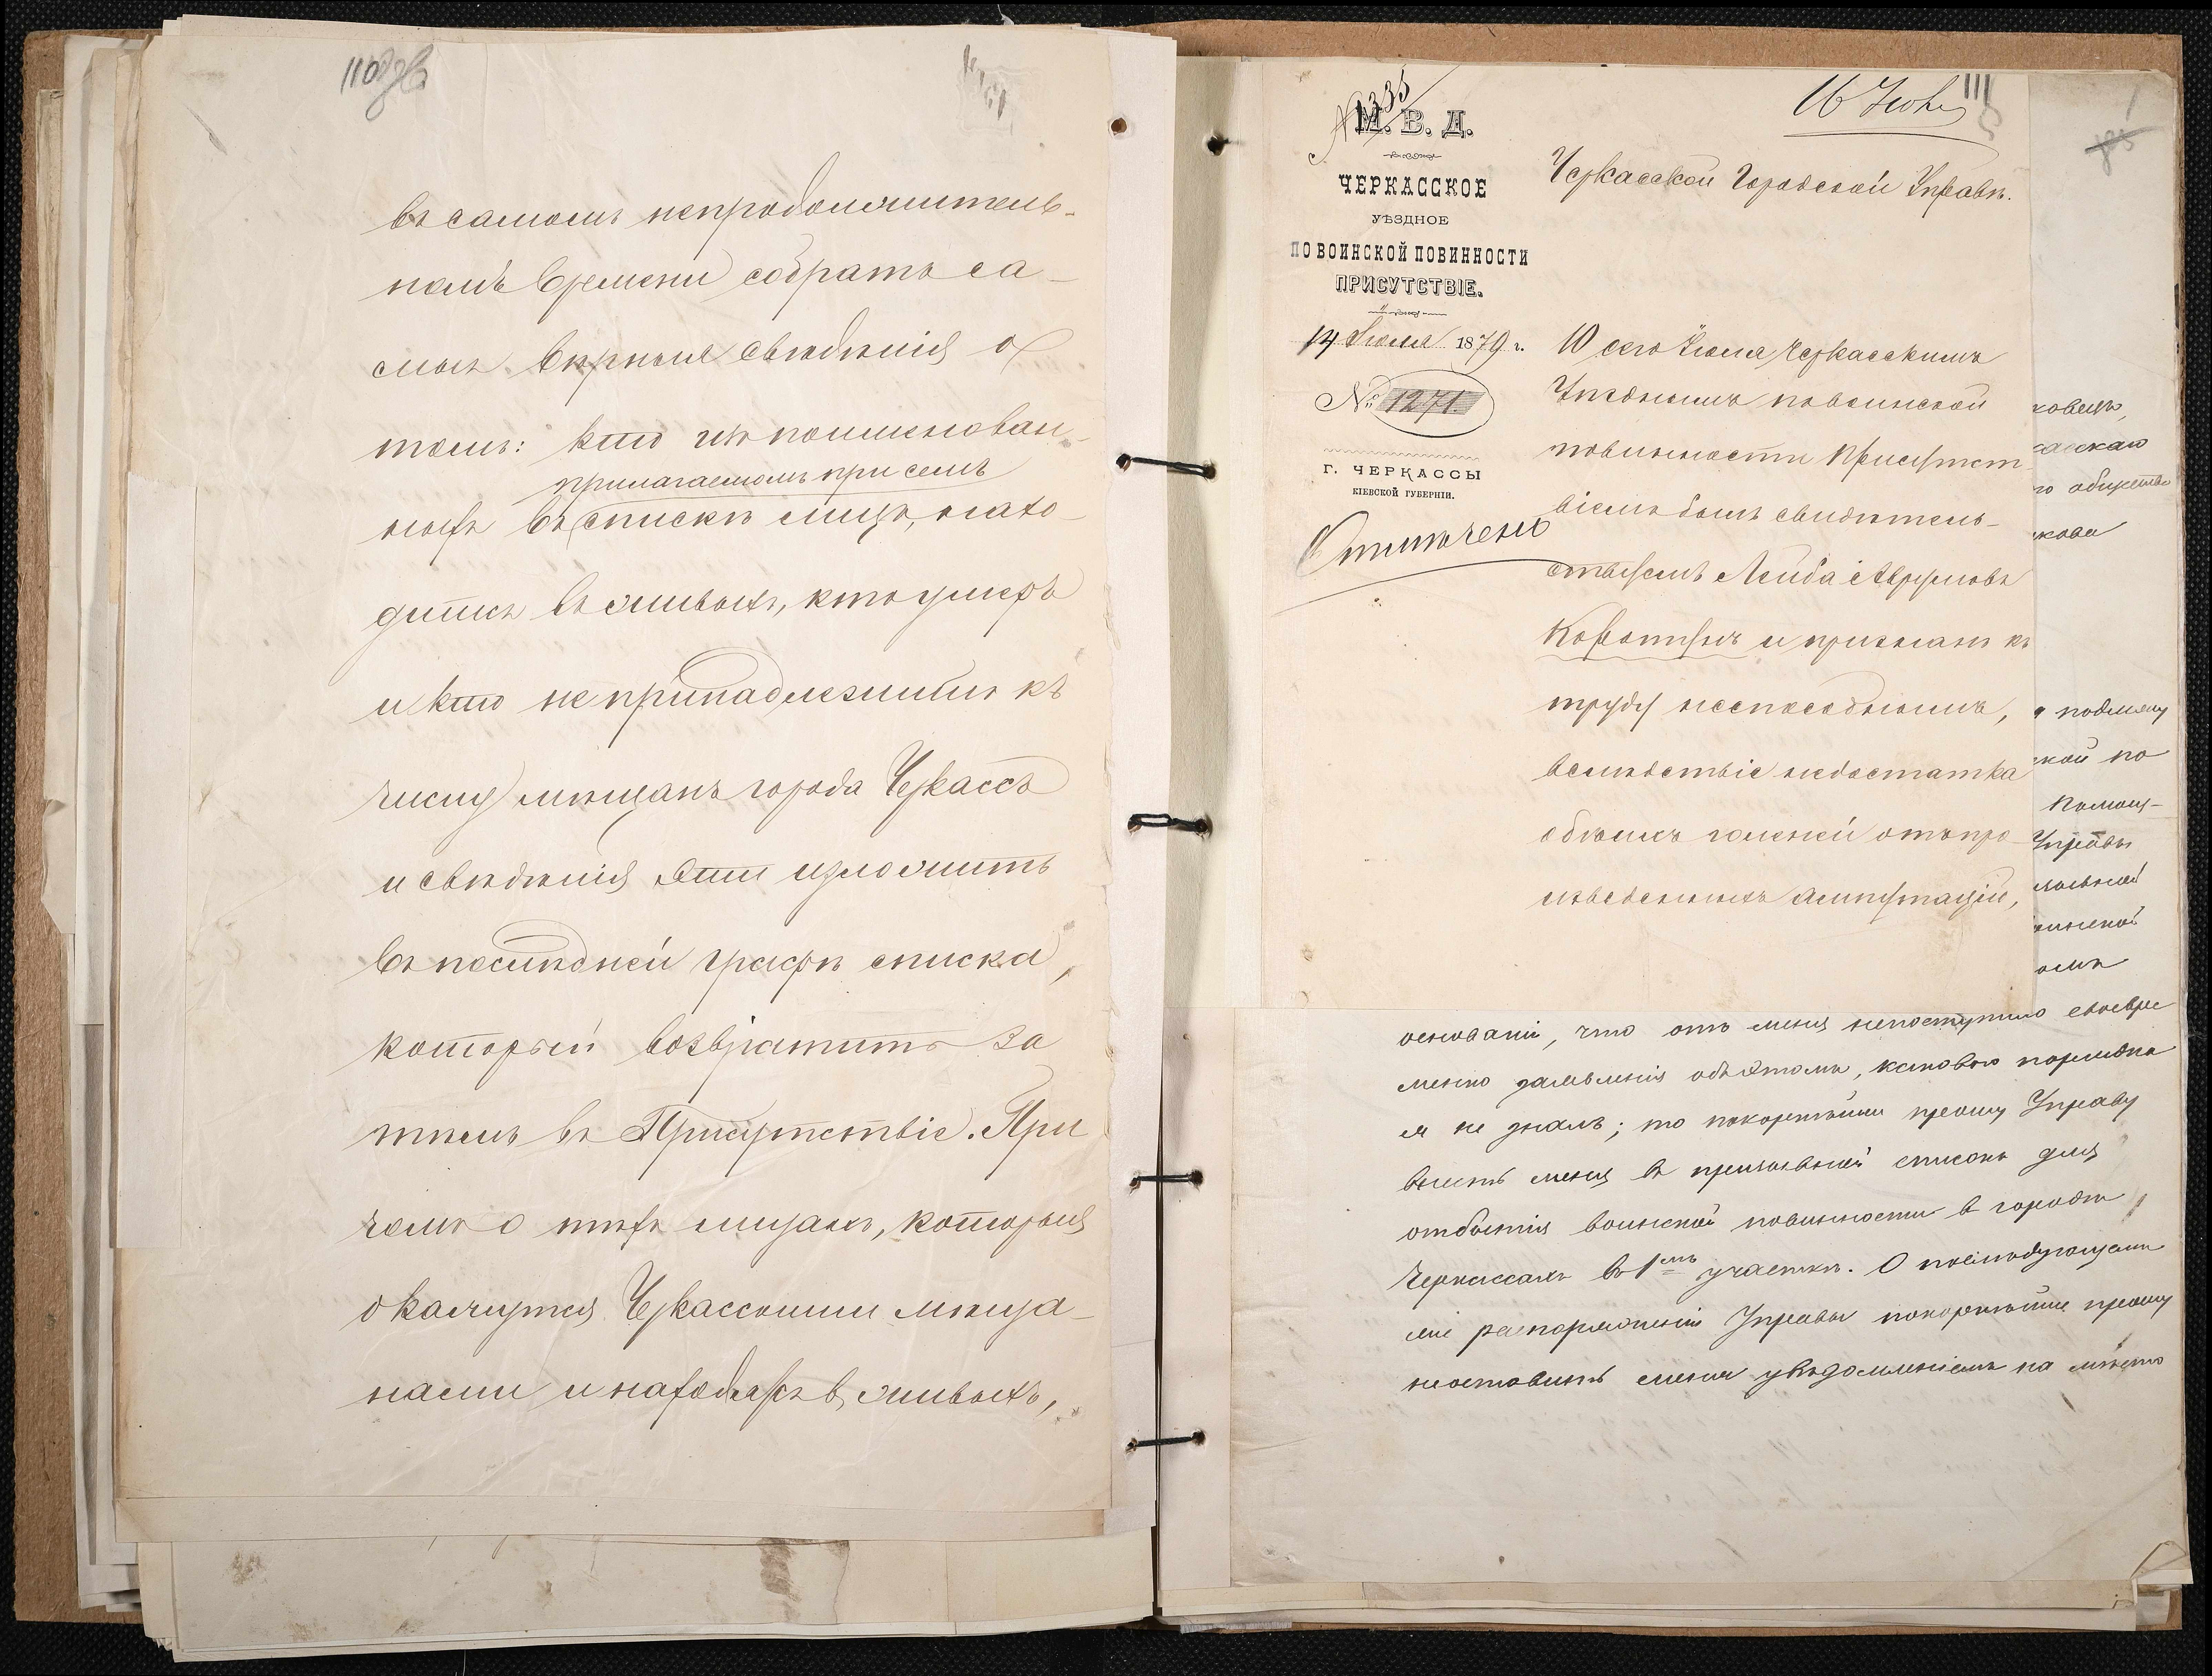 110 об
въ самомъ непродолжитель-
номъ времени собрать са-
мыя вѣрныя свѣдѣнія о
томъ: кто изъ поименован-
прилагаемомъ при семъ
ныхъ въ спискѣ лицъ, нахо-
дится въ живыхъ, кто умеръ
и кто не принадлежитъ къ
числу мѣщанъ города Черкассъ
и свѣдѣнія эти изложить
въ послѣдней графѣ списка,
который возвратить за
тѣмъ въ Присутствіе. При
чемъ о тѣхъ лицахъ, которыя
окажутся Черкасскими мѣща-
нами и находятся в живыхъ,
111
16 Іюл
№ 1335
М. В. Д.
ЧЕРКАССКОЕ
УѢЗДНОЕ
ПО ВОИНСКОЙ ПОВИННОСТИ
ПРИСУТСТВІЕ.
14 Іюля 1879 г.
№ 1271.
Г. ЧЕРКАССЫ
КІЕВСКОЙ ГУБЕРНІИ.
Отмѣчено
Черкасской Городской Управѣ.
10 сего Іюля Черкасскимъ
Уѣзднымъ по воинской
повинности Присутст
віемъ былъ свидѣтель-
ствуемъ Лейба Аврумовъ
и признанъ къ
труду неспособнымъ,
вслѣдствіе недостатка
обѣихъ голеней отъ про
изведенныхъ ампутацій,
общества
подлежу
ской по
Управы
основаніи, что отъ меня непоступило своевре
менно заявленія объ этомъ, каковаго порядка
я не зналъ; то покорнѣйше прошу Управу
внесть меня въ призывной списокъ для
отбытія воинской повинности в городѣ
Черкассахъ въ 1мъ участкѣ. О послѣдующемъ
распоряженіи Управы покорнѣйше прошу
неоставить меня увѣдомленіемъ на мѣсто